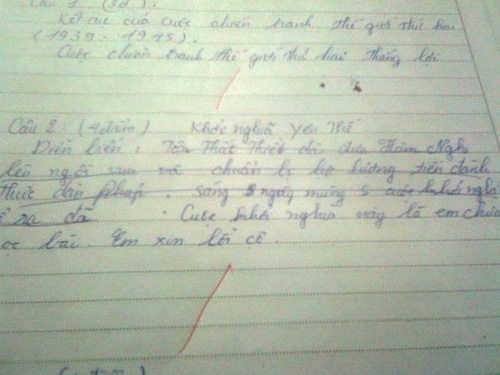 Câu 1 (3đ):
Kết cục của cuộc chiến tranh thế giới thứ hai
(1939 - 1945):
Cuộc chiến tranh thế giới thứ hai thắng lợi
Câu 2: (4 điểm) Khởi nghĩa Yên Thế
Diễn biến: Tôn Thất Thuyết đã đưa Hàm Nghi
lên ngôi vua và chuẩn bị lực lượng tiến đánh
thực dân Pháp. sáng 5 ngày mùng 5 cuộc khởi nghĩa
ổ ra đã Cuộc khởi nghĩa này là em chưa
ọc bài. Em xin lỗi cô.